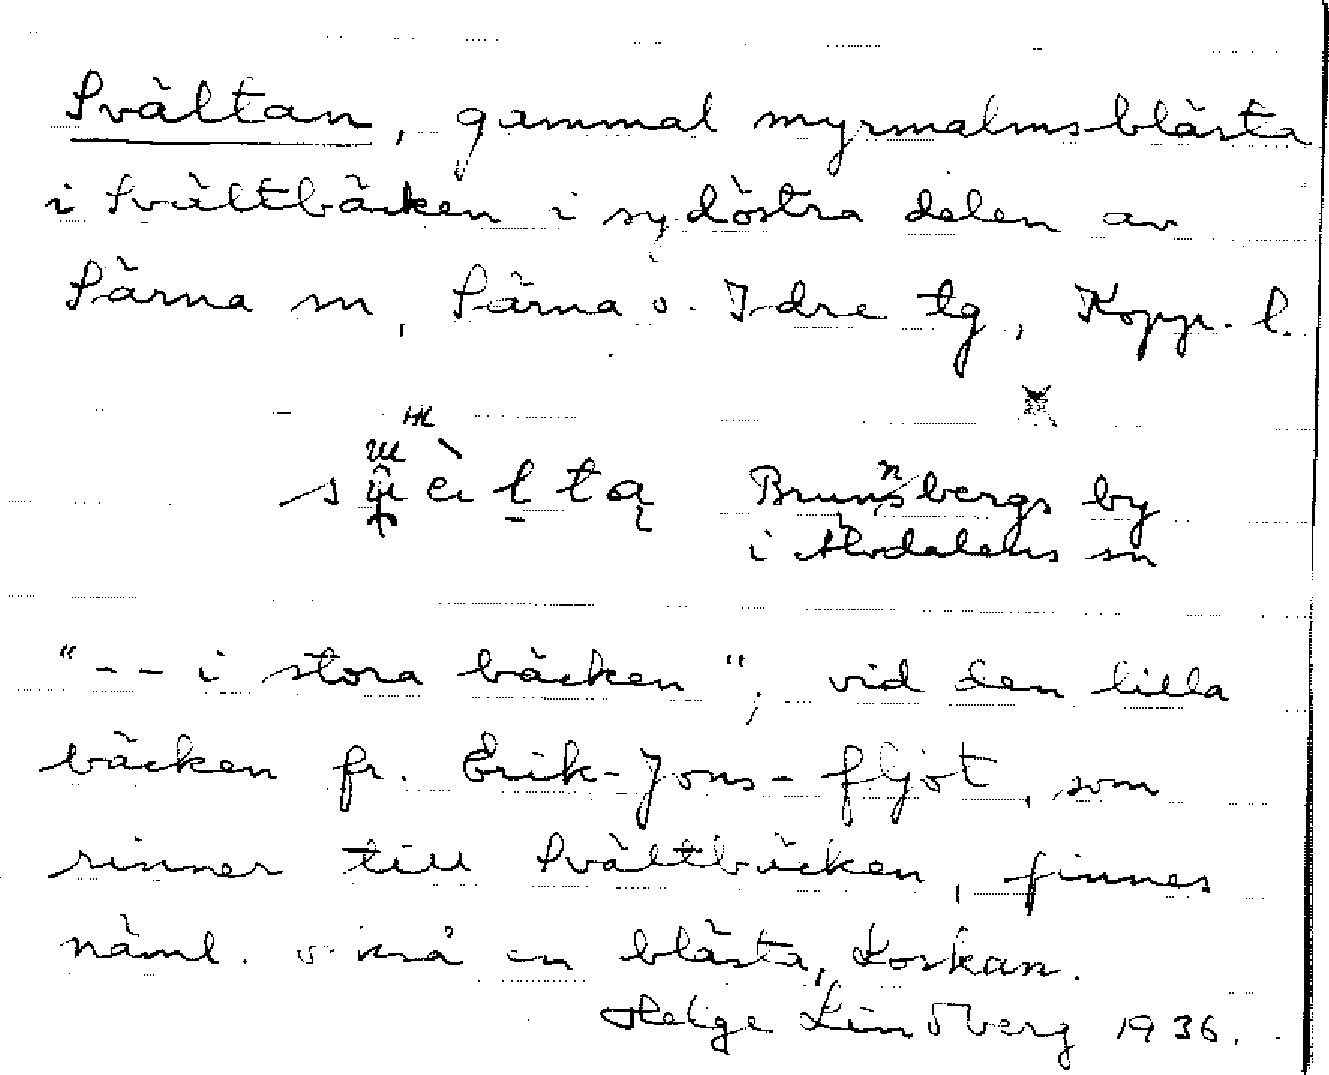 Svältan, gammal myrmalmsblästa
i Svältbäcken i sydöstra delen av
Särna sn, Särna o. Idre tg, Kopp. l.
Brunnbergs by
i Älvdalens sn
"-- i stora bäcken"; vid den lilla
bäcken fr. Erik-Jons-fljot, som
rinner till Svältbäcken, finnes
näml. också en blästa, Loskan.
Helge Lindberg 1936.